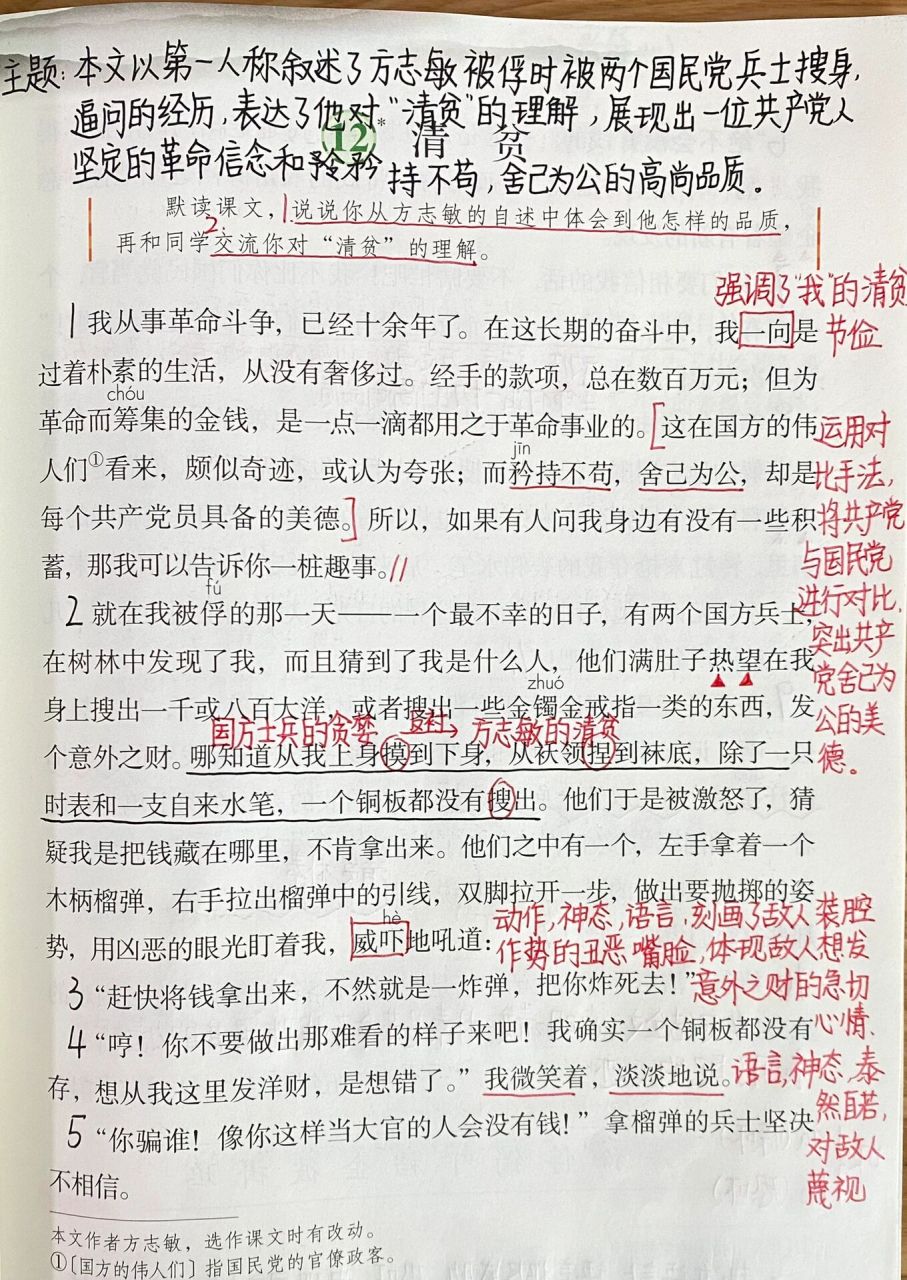 主题：本文以第一人称叙述了方志敏被俘时被两个国民党兵士搜身，
逼问的经历，表达了他对“清贫”的理解，展现出一位共产党人
坚定的革命信念和矜矜持不苟，舍己为公的高尚品质。
12* 清贫
默读课文，1说说你从方志敏的自述中体会到他怎样的品质，
再和同学2.交流你对“清贫”的理解。
强调了“我”的清贫
节俭
1 我从事革命斗争，已经十余年了。在这长期的奋斗中，我一向是
过着朴素的生活，从没有奢侈过。经手的款项，总在数百万元；但为
chóu
革命而筹集的金钱，是一点一滴都用之于革命事业的。[这在国方的伟
jīn
人们①看来，颇似奇迹，或认为夸张；而矜持不苟，舍己为公，却是
每个共产党员具备的美德。]所以，如果有人问我身边有没有一些积
蓄，那我可以告诉你一桩趣事。//
运用对
比手法，
将共产党
与国民党
进行对比，
突出共产
党舍己为
公的美
德。
fú
2 就在我被俘的那一天——一个最不幸的日子，有两个国方兵士，
在树林中发现了我，而且猜到了我是什么人，他们满肚子热望在我
zhuó
身上搜出一千或八百大洋，或者搜出一些金镯金戒指一类的东西，发
国方士兵的贪婪 反衬→ 方志敏的清贫
个意外之财。哪知道从我上身摸到下身，从袄领捏到袜底，除了一只
时表和一支自来水笔，一个铜板都没有搜出。他们于是被激怒了，猜
疑我是把钱藏在哪里，不肯拿出来。他们之中有一个，左手拿着一个
木柄榴弹，右手拉出榴弹中的引线，双脚拉开一步，做出要抛掷的姿
hè
势，用凶恶的眼光盯着我，威吓地吼道：
动作，神态，语言，刻画了敌人装腔
作势的丑恶嘴脸，体现敌人想发
意外之财的急切
心情。
3 “赶快将钱拿出来，不然就是一炸弹，把你炸死去！”
4 “哼！你不要做出那难看的样子来吧！我确实一个铜板都没有
存，想从我这里发洋财，是想错了。”我微笑着，淡淡地说。
语言，神态，泰
然自若，
对敌人
蔑视
5 “你骗谁！像你这样当大官的人会没有钱！”拿榴弹的兵士坚决
不相信。
本文作者方志敏，选作课文时有改动。
①〔国方的伟人们〕指国民党的官僚政客。